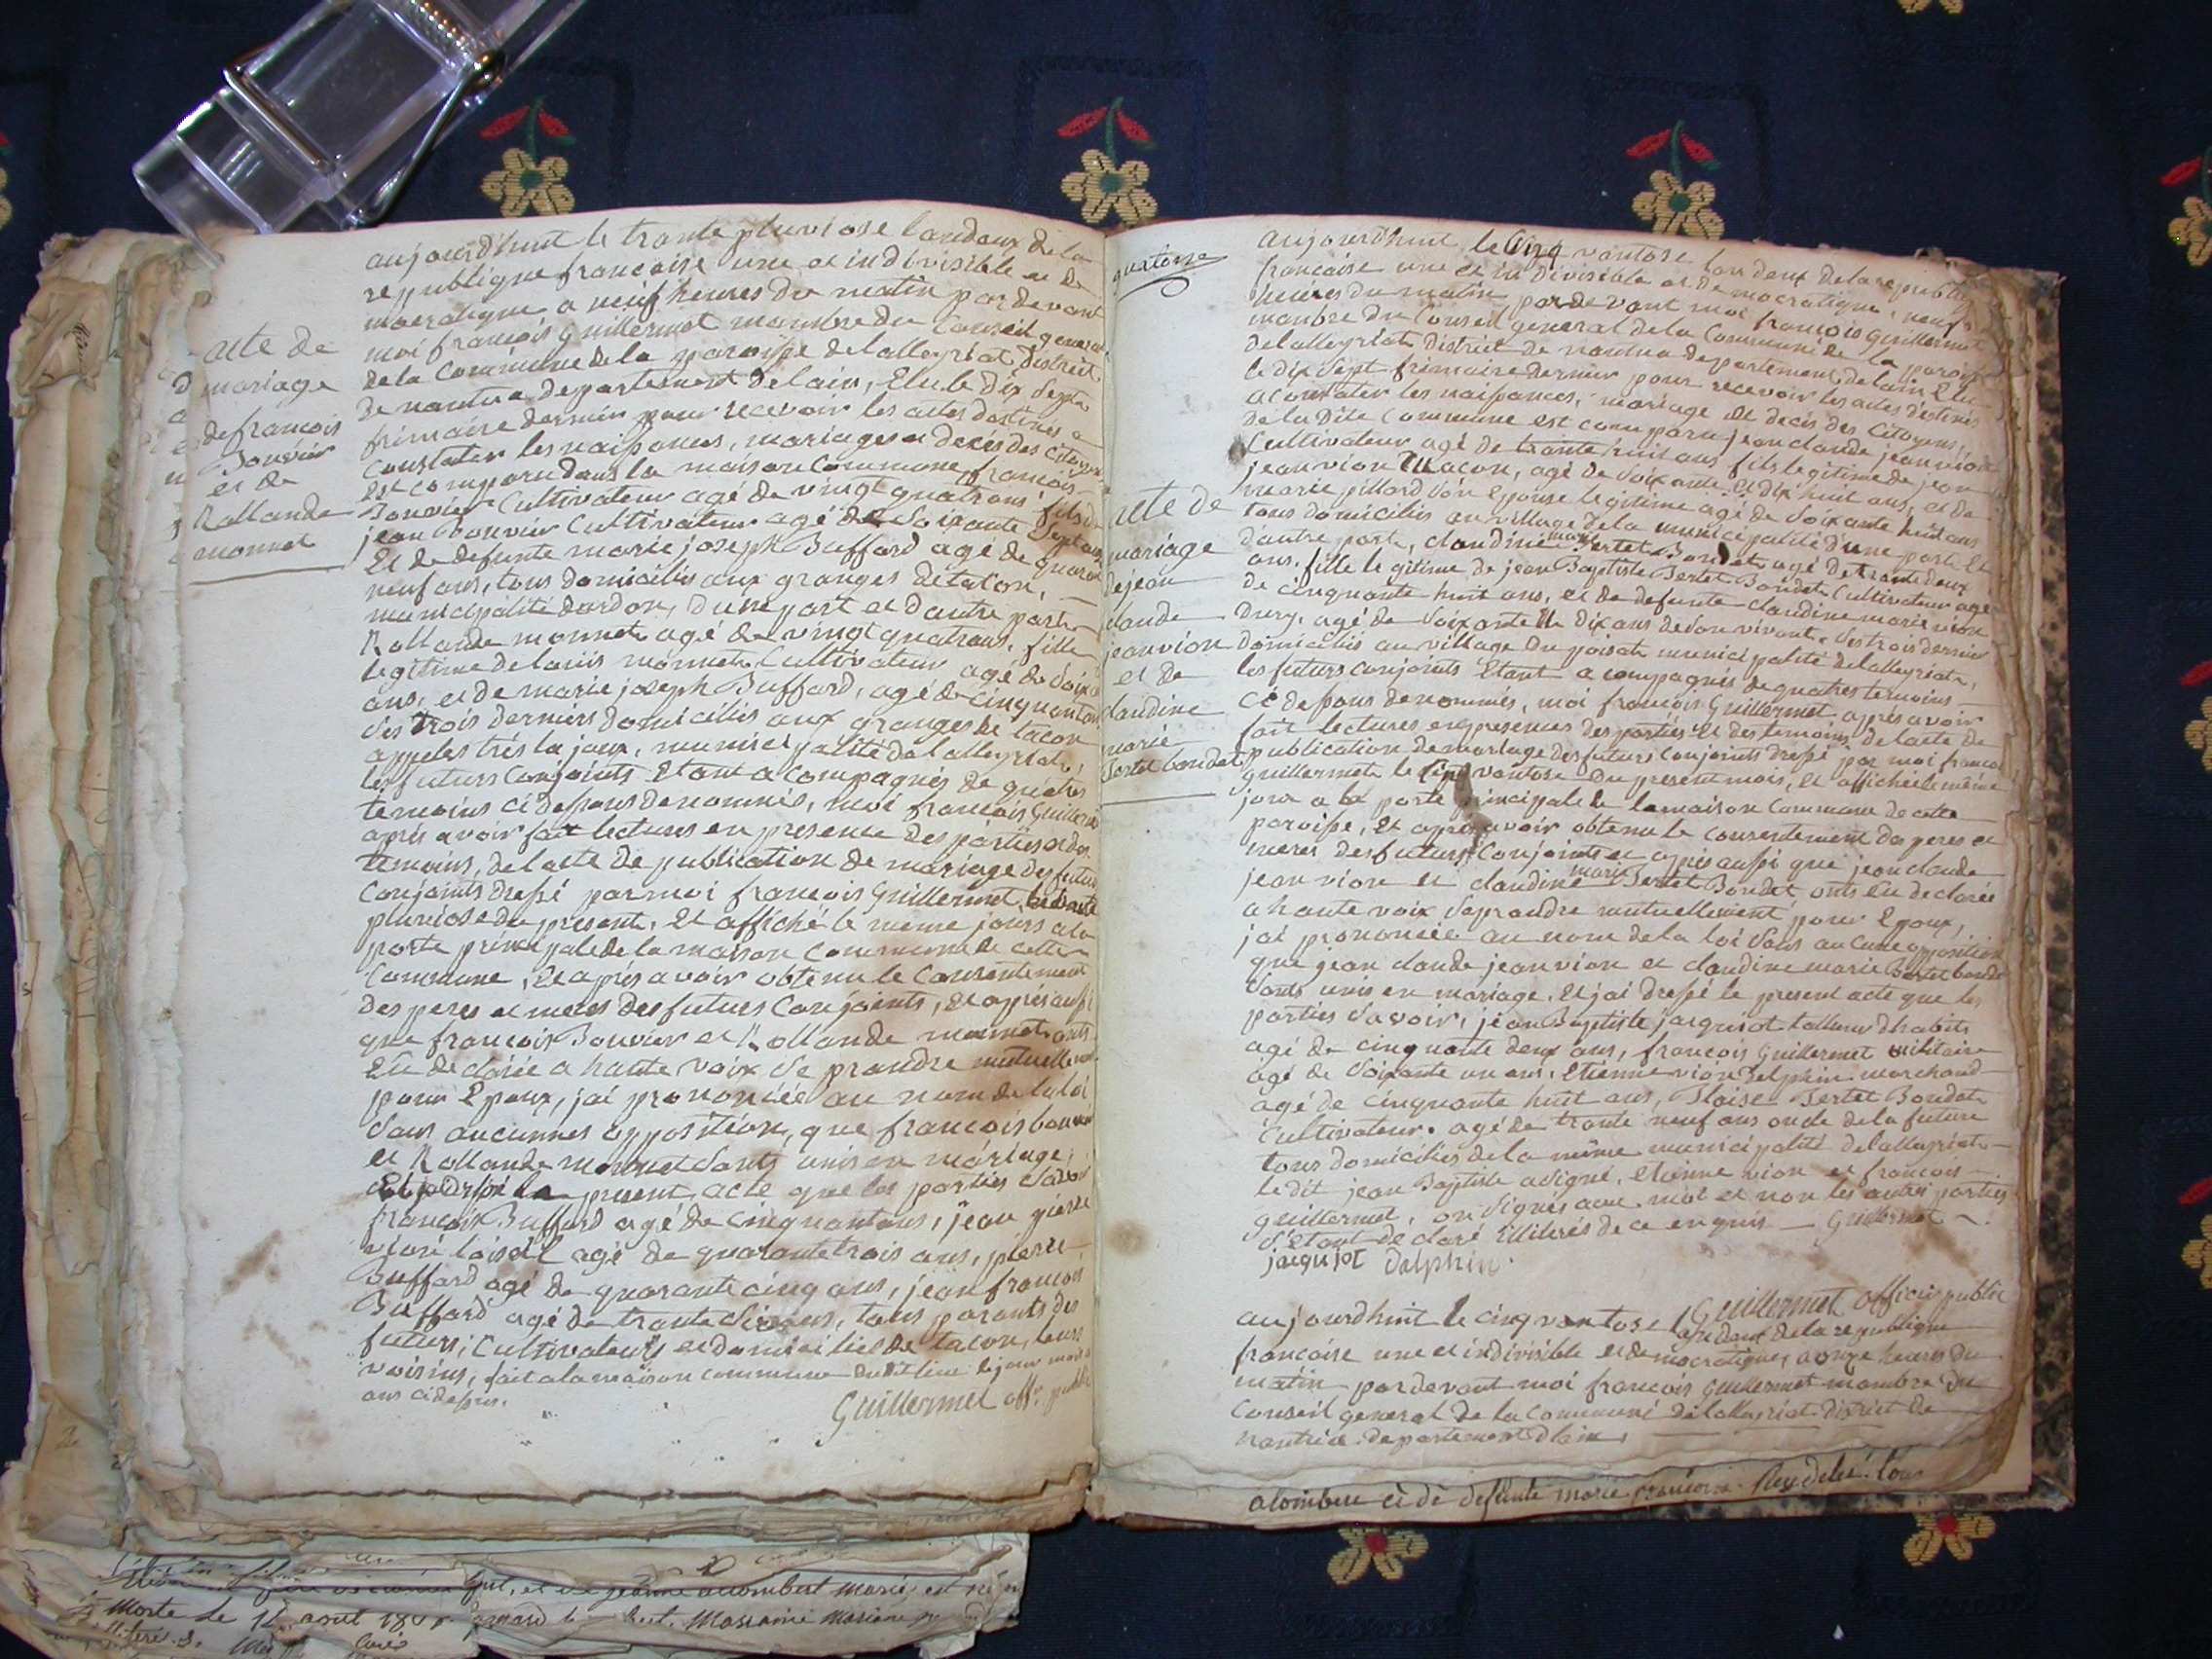 acte de
mariage
de francois
Bouvier
et de
Rollande
monnet
aujourdhuit le trante pluviose landeux de la
republique francaise une et indivisible et de
mocratique a neuf heures du matin par devant
moi francois Guillermet mambre du Conseil general
de la Commune de la paroisse delalleyriat District
de nantua departement delain, Elu le dix Sept
frimaire dernier pour recevoir les actes destines a
Constater les naissances, mariages et deces des citoyens
Est comparu dans la maison Commune, francois
Bouvier Cultivateur agé de vingt quatrans fils de
jean Bouvier Cultivateur agé de Soixante Septans
Et de defunte marie joseph Buffard agé de quarante
neuf ans, tous domiciliés aux granges de tacon,
municipalité dardon, d'une part et dautre part
Rollande monnet agé de vingt quatrans, fille
legitime de monnet Cultivateur agé de Soix
ans, et de marie joseph Buffard, agé de cinquantans
des trois derniers domiciliés aux granges de tacon
appeles trés la joux, municipalité delalleyriat,
les futurs Conjoints Etant acompagnés de quatres
temoins ci dessous denommés, moi francois Guillermet
aprés avoir fait lectures en presence des parties et des
temoins, de lacte de publication de mariage des futurs
Conjoints dressé par moi francois Guillermet le trante
pluviose du present, Et affiché le meme jours a la
porte principale de la maison Commune de cette
Commune, Et aprés avoir obtenu le Consentement
des peres et meres des futurs Conjoints, Et aprés aussi
que francois Bouvier et Rollande monnet onts
Eu declarée a haute voix de prandre mutuellement
pour Epoux, jai prononcée au nom de la loi
Sans aucunnes opposition, que francois bouvier
et Rollande monnet Sonts unis en mariage,
Et jai dressé le present acte que les parties Savoir
francois Buffard agé de cinquantans, jean pierre
agé de quarante trois ans, pierre
Buffard agé de quarante cinq ans, jean francois
Buffard agé de trante ans, tous parants des
futurs, Cultivateurs et domiciliés de tacon, leurs
voisins, fait a la maison commune dudit lieu le jour mois
ans ci dessus.
Guillermet off. public
quatorze
acte de
mariage
de jean
claude
jeanvion
et de
claudine
marie
Bertet boudet
aujourdhuit le Cinq vantose lan deux de la republiq
francaise une et indivisible et democratique, neuf
heures du matin par devant moi francois Guillermet
mambre du Conseil general de la Commune de la paroisse
delalleyriat District de nantua departement delain Elu
le dix Sept frimaire dernier pour recevoir les actes destinés
a constater les naissances, mariage et decés des Citoyens,
de la Dite Commune est comparu jean claude jeanvion
Cultivateur agé de trante huit ans fils legitime de jean
jeanvion Macon, agé de Soixante Et dix huit ans, et de
marie pillard Son Epouse legitime agé de Soixante huit ans
tous domiciliés au village de la municipalité d'une part Et
d'autre part, claudine marie Bertet Boudet agé de trante deux
ans, fille legitime de jean Baptiste Bertet Boudet Cultivateur agé
de cinquante huit ans, et de defunte claudine marie vion
Dury, agé de Soixante Et Dix ans de Son vivant, des trois dernier
domiciliés au village du poisat municipalité delalleyriat,
les futurs conjoints Etant acompagnés de quatres temoins
ci dessous denommés, moi francois Guillermet, aprés avoir
fait lectures en presences des parties Et des temoins de lacte de
publication de mariage des futurs Conjoints dressé par moi francois
guillermet le cinq vantose du present mois, et affichée le même
jour a la porte principale de la maison Commune de cette
paroisse, Et aprés avoir obtenu le consentement des peres et
meres des futurs Conjoints et aprés aussi que jean claude
jean vion et claudine marie Bertet Boudet onts Eu declarée
a haute voix de prandre mutuellement pour Epoux,
jai prononcée au nom de la loi Sans aucune opposition
que jean claude jeanvion et claudine marie Bertet boudet
Sonts unis en mariage, Et jai dressé le present acte que les
parties Savoir, jean Baptiste jacquiot tallieur dhabits
agé de cinquante deux ans, francois Guillermet militaire
agé de Soixante un ans, etienne vion Delphin marchand
agé de cinquante huit ans, Blaise Bertet Boudet
Cultivateur agé de trante neuf ans oncle de la future
tous domiciliés de la même municipalité delalleyriat
le dit jean Baptiste a Signé, etienne vion et francois
guillermet, on Signés avec moi et non les autres parties
S'etant declaré Illiterés de ce enquis — Guillermet
jacquiot Dalphin
Guillermet officier public
aujourdhuit le cinq vantose lan deux de la republique
francaise une et indivisible et democratique, a onze heures du
matin par devant moi francois Guillermet mambre du
Conseil general de la Commune delalleyriat District de
nantua departement dlain,
alombert et de defunte marie francoise
Morte le 12 aout